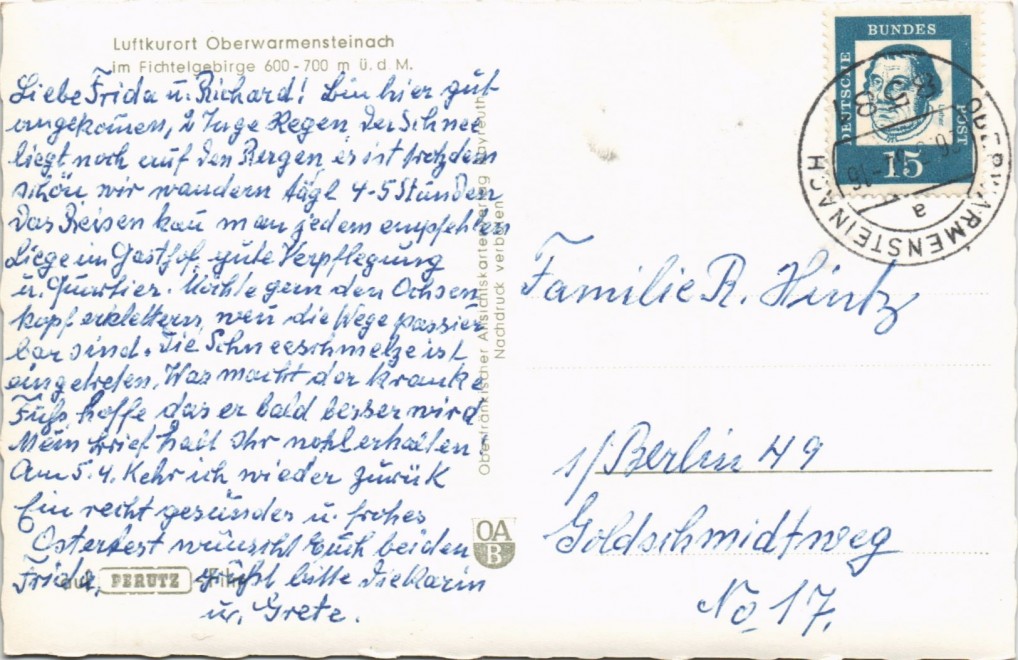 Luftkurort Oberwarmensteinach
im Fichtelgebirge 600-700 m ü. d. M.
Liebe Frida u. Richard! Bin hier gut
angekom̄en, 2 Tage Regen der Schnee
liegt noch auf den Bergen, es ist trotzdem
schön wir wandern tägl 4-5 Stunden
Das Reisen kan̄ man jedem empfehlen
Liege im Gasthof, gute Verpflegung
u. Quartier. Möchte gern den Ochsen
kopf erklettern, wen̄ die Wege passier
bar sind. Die Schneeschmelze ist
eingetreten. Was macht der kranke
Fuß, hoffe das er bald besser wird
Mein Brief habt Ihr wohl erhalten.
Am 5.4. Kehr ich wieder zurük
Ein recht gesundes u. frohes
Osterfest wünscht Euch beiden
Frida, Grüßt bitte die Karin
u. Grete.
auf PERUTZ Film
Oberfränkischer Ansichtskartenverlag Bayreuth
Nachdruck verboten
OA
B
DEUTSCHE
BUNDES
POST
15
OBERWARMENSTEINACH
a
Familie R. Hintz
1/ Berlin 49
Goldschmidtweg
No 17.